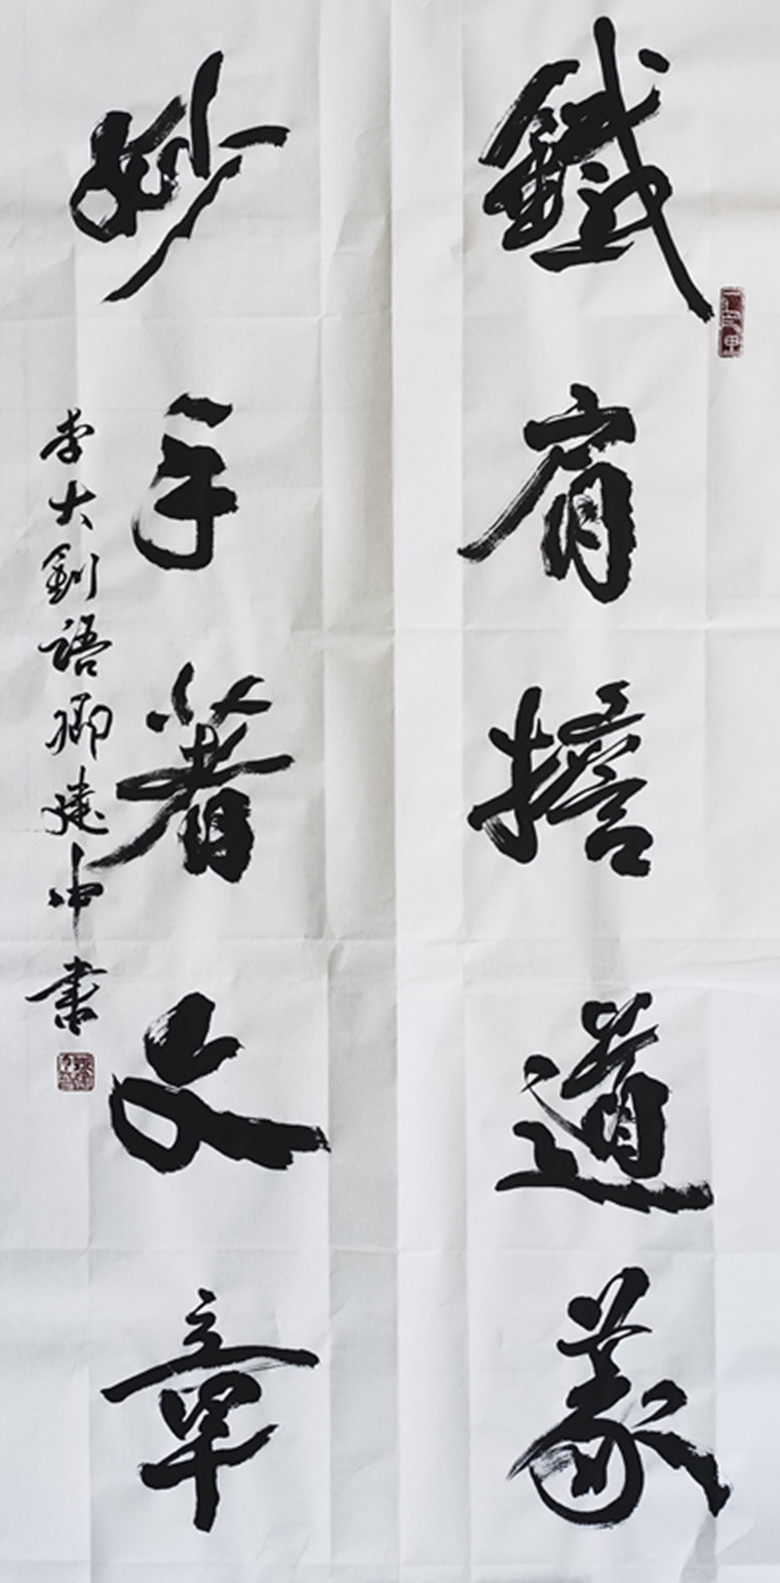 鐵肩擔道義
妙手著文章
李大釗語卿建中書